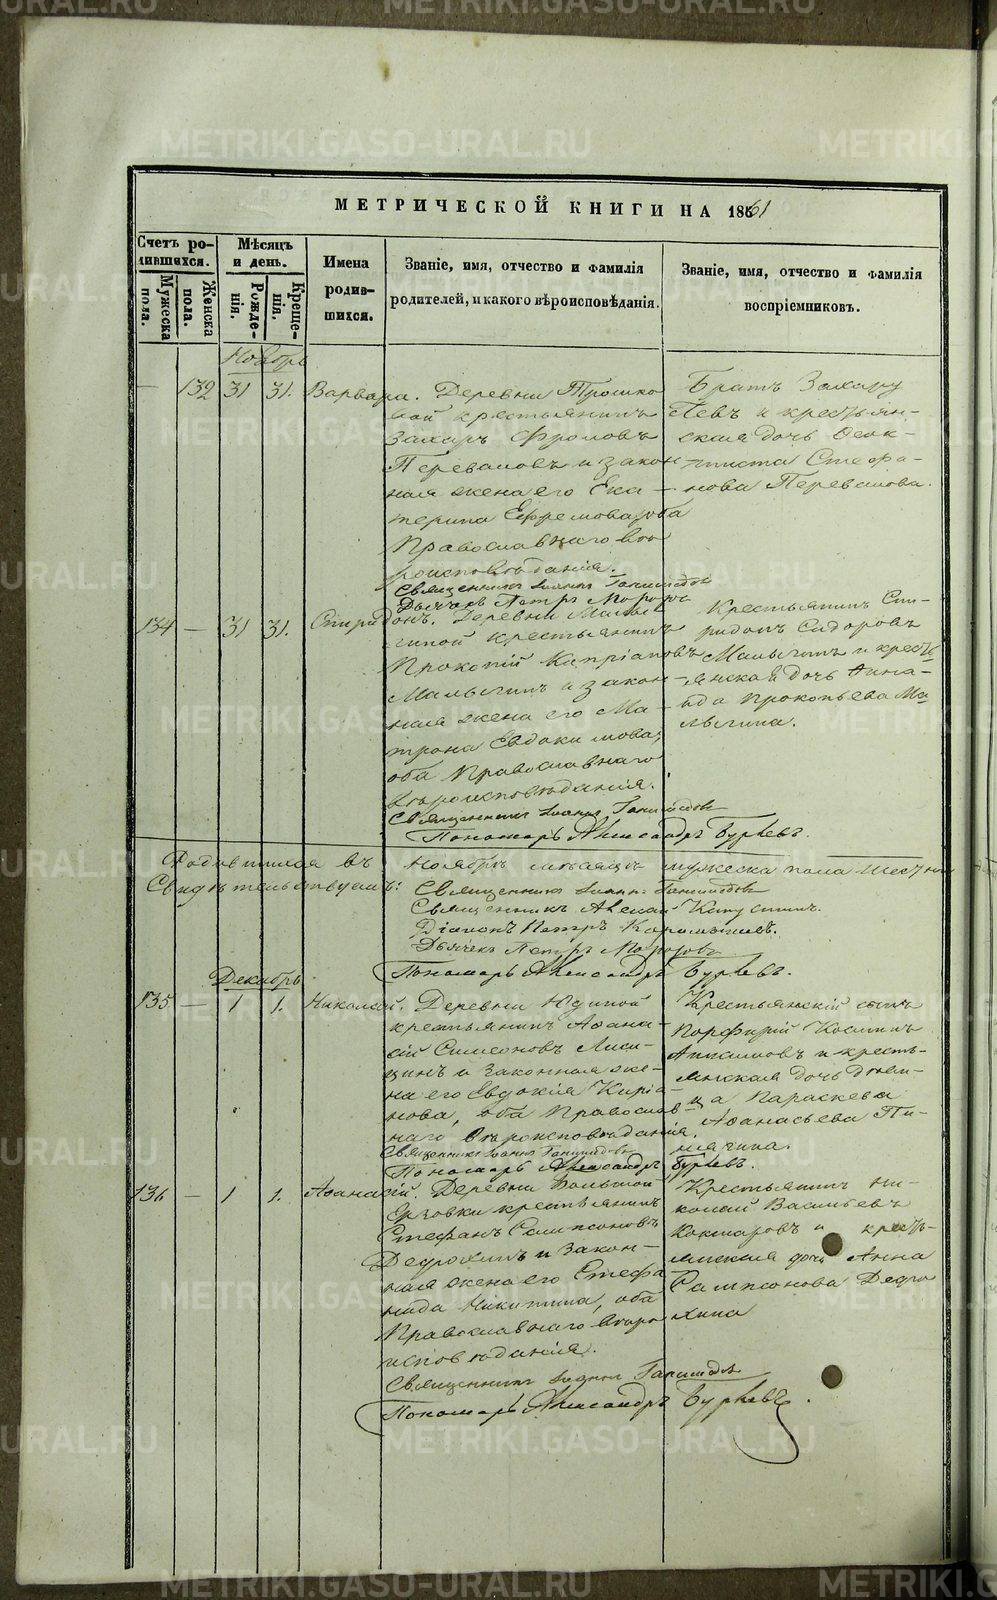 МЕТРИЧЕСКОЙ КНИГИ НА 1861
Счетъ ро-
дившихся.
Мужеска пола.
Женска пола.
Мѣсяцъ
и день.
Рожде-
нія.
Креще-
нія.
Имена
родив-
шихся.
Званіе, имя, отчество и фамилія
родителей, и какого вѣроисповѣданія.
Званіе, имя, отчество и фамилія
воспріемниковъ.
Ноябрь
— 132 31 31. Варвара.
Деревни
крестьянинъ
Захаръ Фроловъ
Переваловъ и закон
ная жена его Ека
терина Ефремова, оба
Православнаго вѣ
роисповѣданія.
Священникъ Іоаннъ
Дьячекъ Петръ Морозовъ
Братъ Захару
Левъ и крестьян-
ская дочь Феок-
тиста Стефа-
нова Перевалова.
134 — 31 31. Спиридонъ.
Деревни Малы
гиной крестьянинъ
Прокопій Кипріановъ
Малыгинъ и закон-
ная жена его Ма-
трона Евдокимова,
оба Православнаго
вѣроисповѣданія.
Священникъ Іоаннъ
Пономарь Александръ Бурцевъ.
Крестьянинъ Спи-
ридонъ Сидоровъ
Малыгинъ и кресть
янская дочь
Прокопьева Ма
лыгина.
Родившихся въ Ноябрѣ мѣсяцѣ мужеска пола
Свидѣтельствуемъ:
Священникъ Іоаннъ
Священникъ Алексѣй
Діаконъ Петръ
Дьячекъ Петръ Морозовъ
Пономарь Александръ Бурцевъ.
Декабрь
135 — 1 1. Николай.
Деревни Юдиной
крестьянинъ Аѳана-
сій Симеоновъ Лиси-
цинъ и законная же-
на его Евдокія Киріа-
нова, оба Православ-
наго вѣроисповѣданія.
Священникъ Іоаннъ
Пономарь Александръ Бурцевъ.
Крестьянскій сынъ
Порфирій Косминъ
и кресть-
янская дочь дѣви-
ца Параскева
Аѳанасьева Пи-
нягина.
136 — 1 1. Аѳанасій.
Деревни Большой
Ерзовки крестьянинъ
Стефанъ Сампсоновъ
Дедюхинъ и закон-
ная жена его Стефа
нида Никитина, оба
Православнаго вѣро
исповѣданія.
Священникъ Іоаннъ
Пономарь Александръ Бурцевъ.
Крестьянинъ Ни-
колай Васильевъ
Кокшаровъ и кресть-
янская дочь Анна
Сампсонова Дедю
хина
METRIKI.GASO-URAL.RU